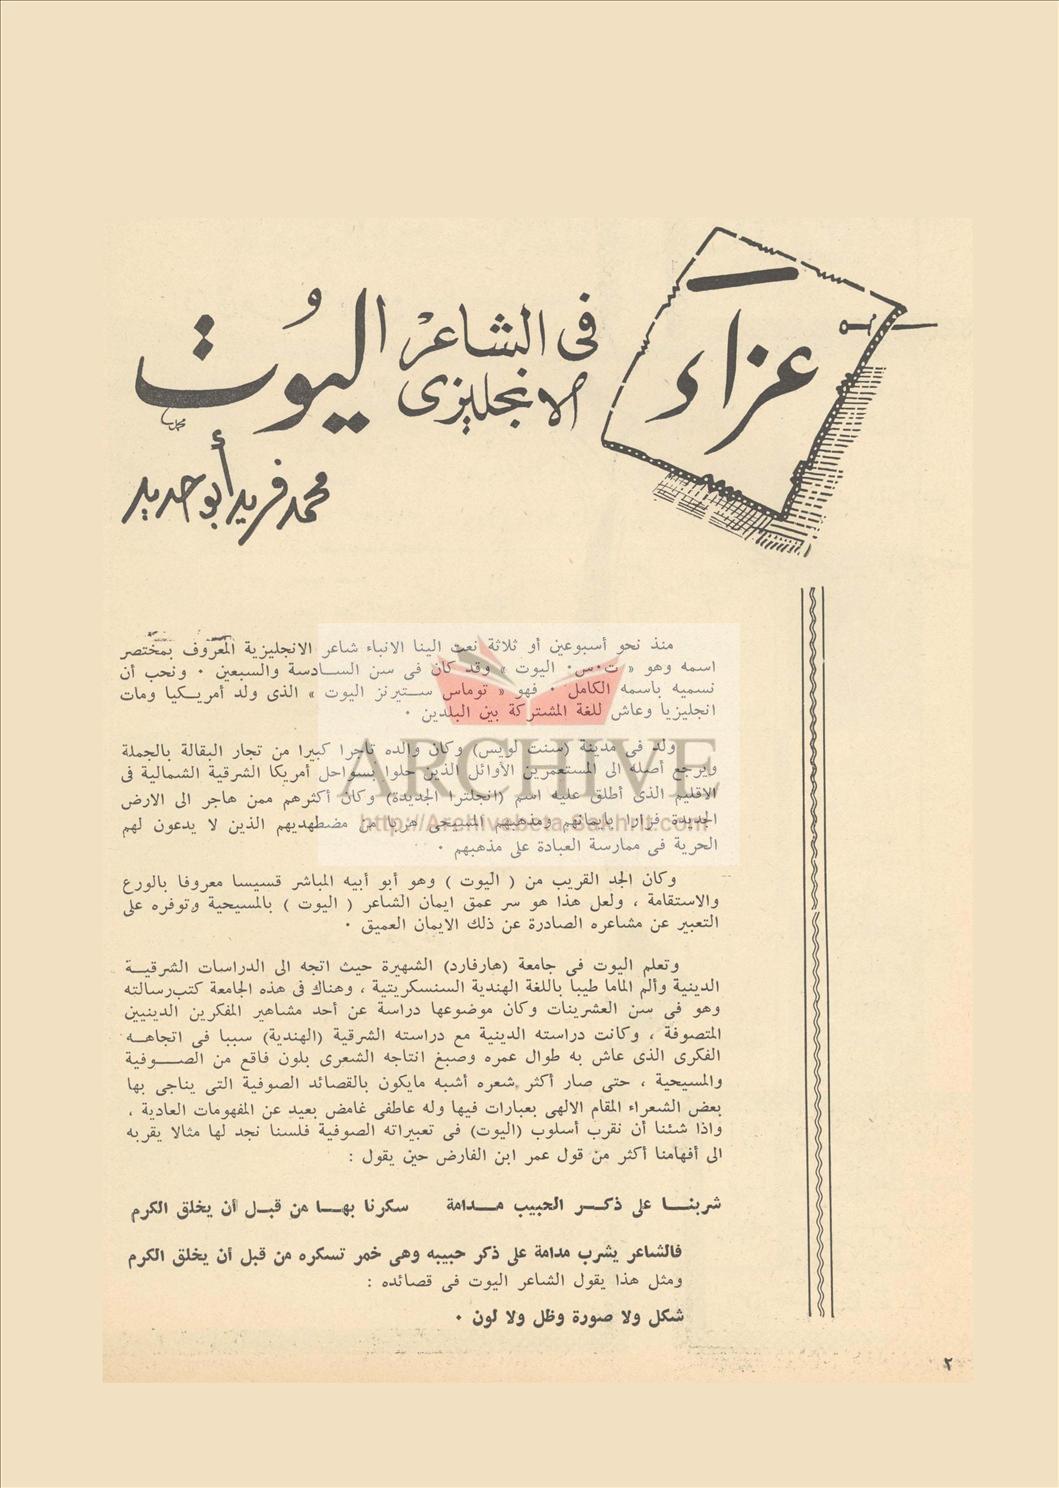 عزاء
فى الشاعر
الانجليزى
اليُوت
محمد فريد أبو حديد
منذ نحو أسبوعين أو ثلاثة نعت الينا الانباء شاعر الانجليزية المعروف بمختصر
اسمه وهو « ت٠س٠ اليوت » وقد كان فى سن الســادسة والسبعين ٠ ونحب أن
نسميه باسمه الكامل ٠ فهو « توماس ســتيرنز اليوت » الذى ولد أمريــكيا ومات
انجليزيا وعاش للغة المشتركة بين البلدين ٠
ولد فى مدينة (سنت لويس) وكان والده تاجرا كبيرا من تجار البقالة بالجملة
ويرجع أصله الى المستعمرين الأوائل الذين حلوا بسواحل أمريكا الشرقية الشمالية فى
الاقليم الذى أطلق عليه اسم (انجلترا الجديدة) وكان أكثرهم ممن هاجر الى الارض
الجديدة فرارا بايمانهم ومذهبهم المسيحى هربا من مضطهديهم الذين لا يدعون لهم
الحرية فى ممارسة العبادة على مذهبهم ٠
وكان الجد القريب من ( اليوت ) وهو أبو أبيه المباشر قسيسا معروفا بالورع
والاستقامة ، ولعل هذا هو سر عمق ايمان الشاعر ( اليوت ) بالمسيحية وتوفره على
التعبير عن مشاعره الصادرة عن ذلك الايمان العميق ٠
وتعلم اليوت فى جامعة (هارفارد) الشهيرة حيث اتجه الى الدراسات الشرقيــة
الدينية وألم الماما طيبا باللغة الهندية السنسكريتية ، وهناك فى هذه الجامعة كتب رسالته
وهو فى سن العشرينات وكان موضوعها دراسة عن أحد مشاهير المفكرين الدينيين
المتصوفة ، وكانت دراسته الدينية مع دراسته الشرقية (الهندية) سببا فى اتجاهــه
الفكرى الذى عاش به طوال عمره وصبغ انتاجه الشعرى بلون فاقع من الصــــوفية
والمسيحية ، حتى صار أكثر شعره أشبه مايكون بالقصائد الصوفية التى يناجى بها
بعض الشعراء المقام الالهى بعبارات فيها وله عاطفى غامض بعيد عن المفهومات العادية ،
واذا شئنا أن نقرب أسلوب (اليوت) فى تعبيراته الصوفية فلسنا نجد لها مثالا يقربه
الى أفهامنا أكثر من قول عمر ابن الفارض حين يقول :
شربنــــا على ذكــر الحبيب مــدامة سكرنا بهــا من قبــل أن يخلق الكرم
فالشاعر يشرب مدامة على ذكر حبيبه وهى خمر تسكره من قبل أن يخلق الكرم
ومثل هذا يقول الشاعر اليوت فى قصائده :
شكل ولا صورة وظل ولا لون ٠
٢
ARCHIVE
http://Archivebeta.Sakhrit.com